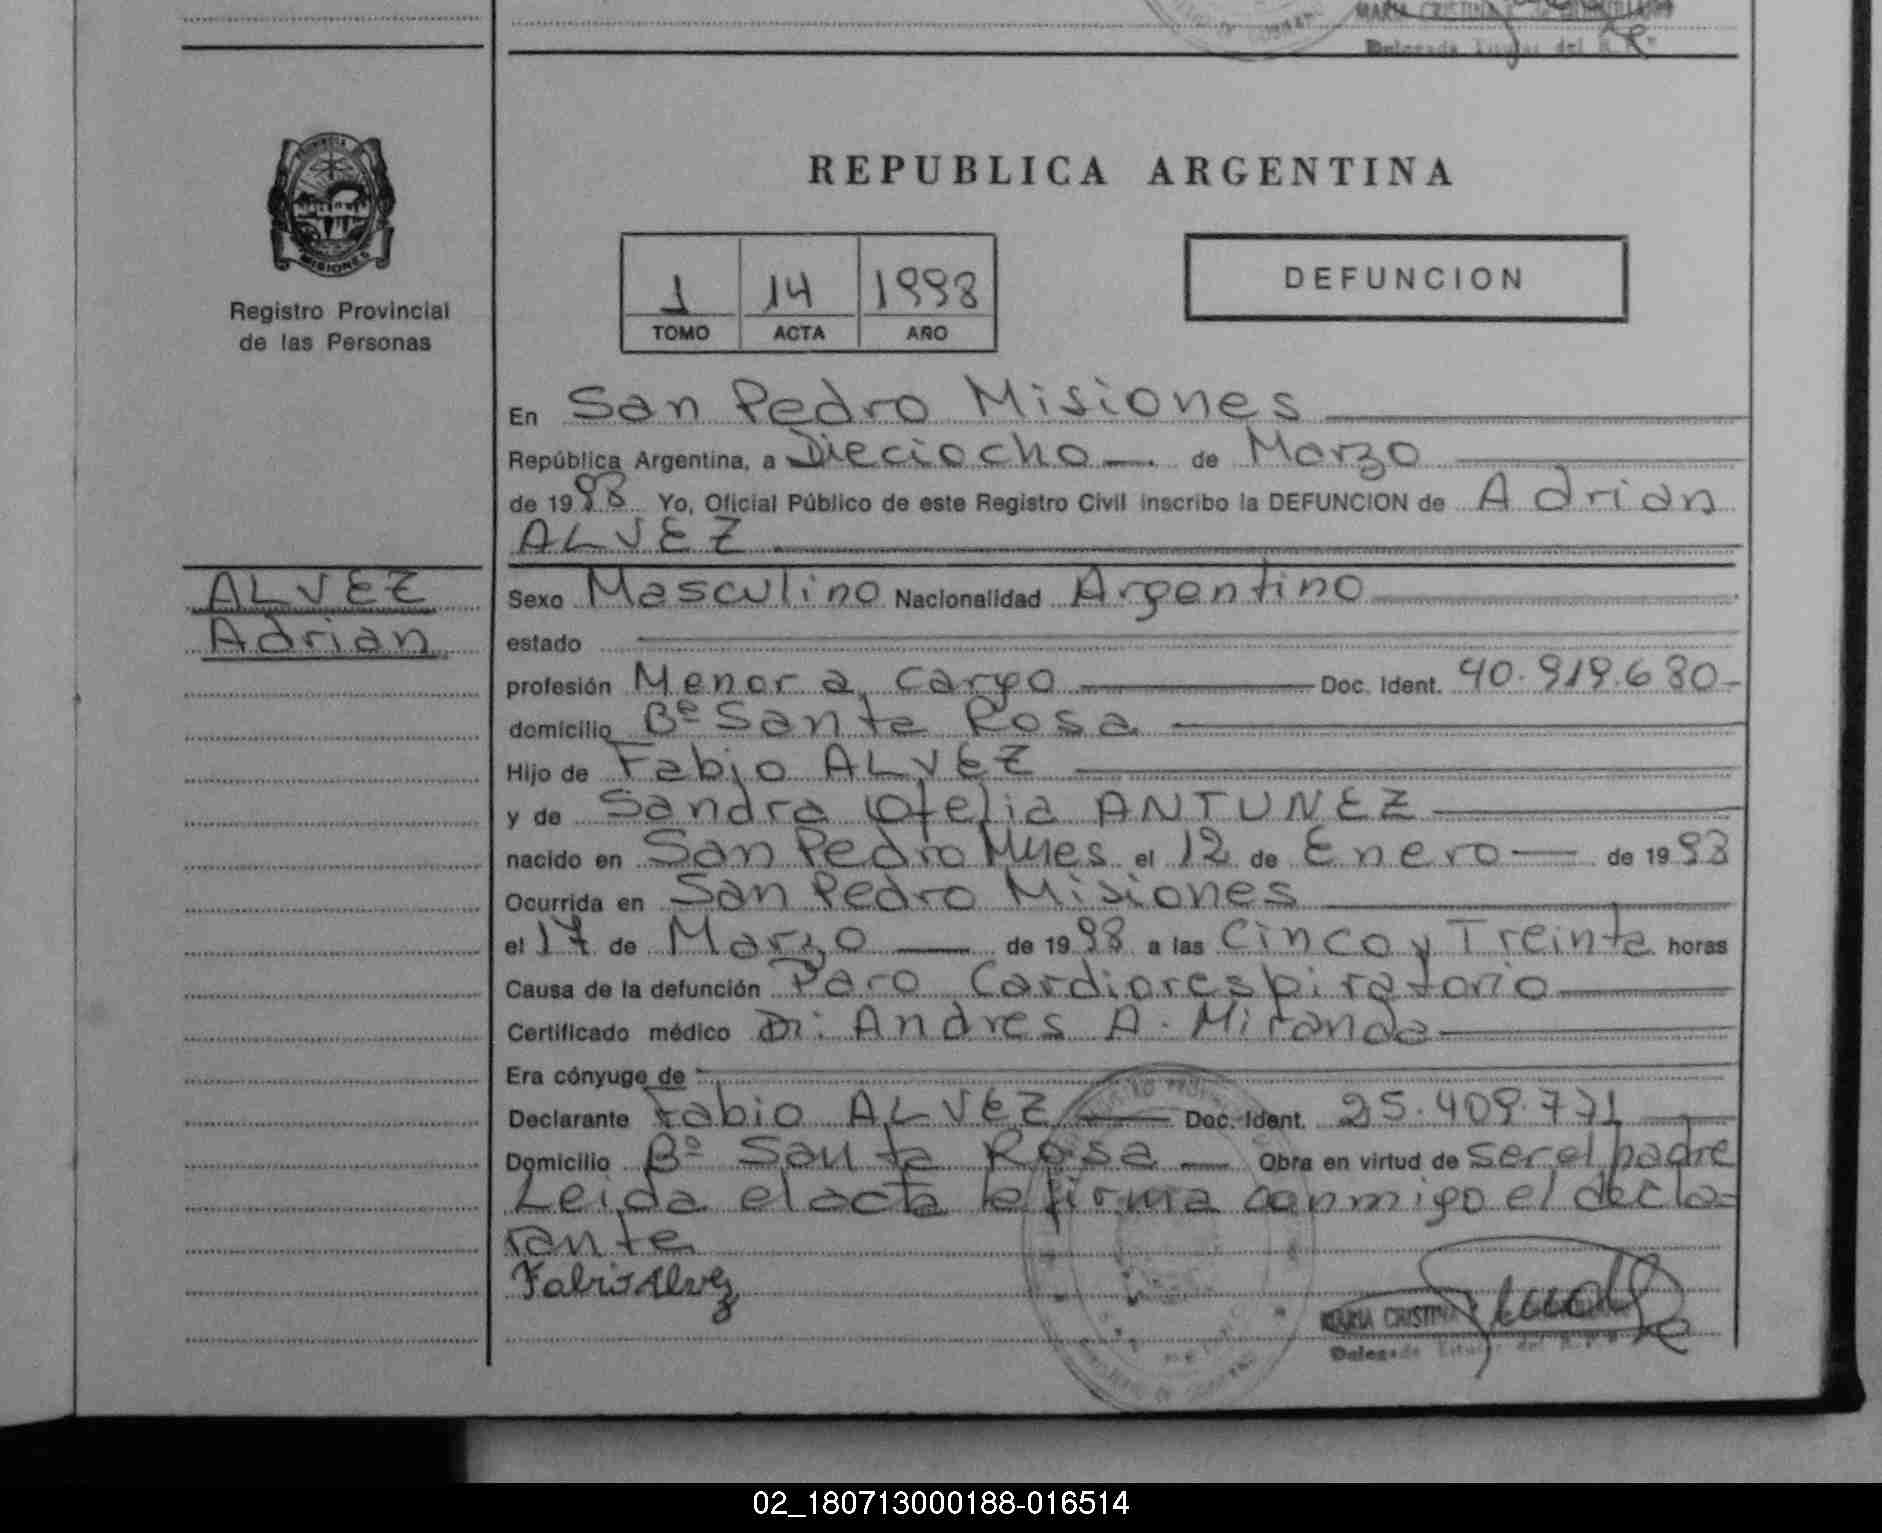 MARIA CRISTINA
Delegada Titular del R. P.
PROVINCIA
MISIONES
Registro Provincial
de las Personas
REPUBLICA ARGENTINA
1 14 1998
TOMO ACTA AÑO
DEFUNCION
En San Pedro Misiones
República Argentina, a Dieciocho de Marzo
de 1998 Yo, Oficial Público de este Registro Civil inscribo la DEFUNCION de Adrian
ALVEZ
ALVEZ
Adrian
Sexo Masculino Nacionalidad Argentino
estado
profesión Menor a cargo Doc. Ident. 40.919.680
domicilio Bº Santa Rosa
Hijo de Fabio ALVEZ
y de Sandra Ofelia ANTUNEZ
nacido en San Pedro Mnes el 12 de Enero de 1998
Ocurrida en San Pedro Misiones
el 17 de Marzo de 1998 a las Cinco y Treinta horas
Causa de la defunción Paro Cardiorespiratorio
Certificado médico Dr: Andres A. Miranda
Era cónyuge de
Declarante Fabio ALVEZ Doc. Ident. 25.409.771
Domicilio Bº Santa Rosa Obra en virtud de ser el padre
Leida el acta la firma conmigo el decla-
rante
Fabio Alvez
MARIA CRISTINA
Delegada Titular del R. P.
02_180713000188-016514